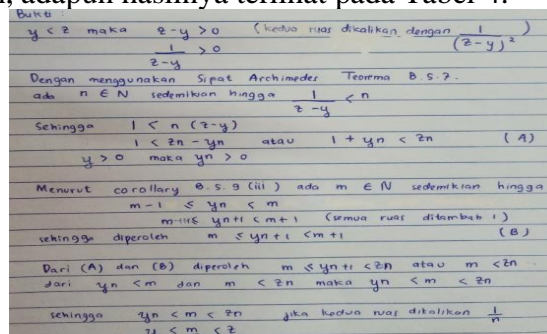 , adapun hasilnya terlihat pada Tabel 4.
Bukti :
y < z maka z - y > 0 (kedua ruas dikalikan dengan 1/(z-y)²)
1/(z-y) > 0
Dengan menggunakan Sipat Archimedes Teorema B.5.7.
ada n ∈ N sedemikian hingga 1/(z-y) < n
Sehingga 1 < n (z-y)
1 < zn - yn atau 1 + yn < zn (A)
y > 0 maka yn > 0
Menurut corollary B.5.9 (iii) ada m ∈ N sedemikian hingga
m-1 ≤ yn < m
m-1+1≤ yn+1 < m+1 (semua ruas ditambah 1)
sehingga diperoleh m ≤ yn+1 < m+1 (B)
Dari (A) dan (B) diperoleh m ≤ yn+1 < zn atau m < zn
dari yn < m dan m < zn maka yn < m < zn
sehingga yn < m < zn jika kedua ruas dikalikan 1/n
y < m < z